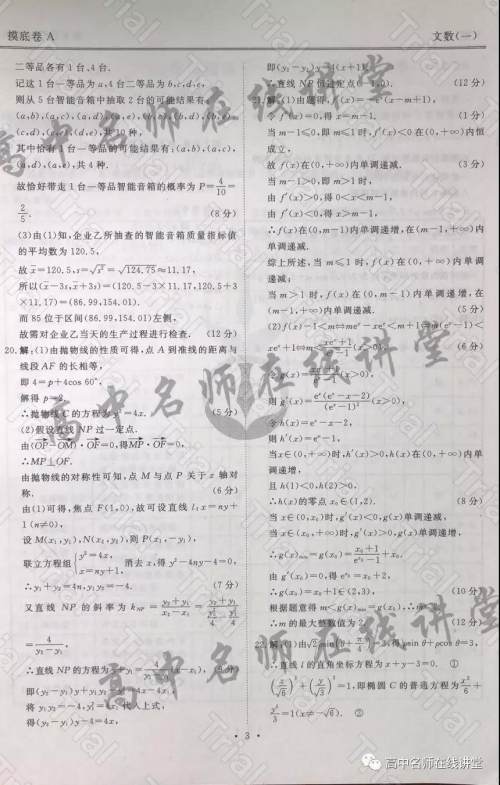 摸底卷 A
文数(一)
二等品各有1台、4台.
记这1台一等品为a,4台二等品为b,c,d,e,
则从5台智能音箱中抽取2台的可能结果有:
(c,d),(c,e),(d,e),共10种.
其中恰有1台一等品的可能结果有:(a,b),(a,c),
(a,d),(a,e),共4种.
故恰好带走1台一等品智能音箱的概率为P=4/10=
2/5. (8分)
(3)由(1)知,企业乙所抽查的智能音箱质量指标值
的平均数为120.5,
故x̄=120.5,s=√s²=√124.75≈11.17,
所以(x̄-3s,x̄+3s)=(120.5-3×11.17,120.5+3
×11.17)=(86.99,154.01).
而85位于区间(86.99,154.01)左侧,
故需对企业乙当天的生产过程进行检查. (12分)
20.解:(1)由抛物线的性质可得,点A到准线的距离与
线段AF的长相等,
即4=p+4cos 60°,
解得p=2,
∴抛物线C的方程为y²=4x. (5分)
(2)假设直线NP过一定点.
由(OP-OM)·OF=0,得MP·OF=0,
∴MP⊥OF.
由抛物线的对称性可知,点M与点P关于x轴对
称. (6分)
由(1)可得,焦点F(1,0),故可设直线l:x=ny+
1(n≠0),
设M(x₁,y₁),N(x₂,y₂),则P(x₁,-y₁),
联立方程组{y²=4x, x=ny+1, 消去x,得y²-4ny-4=0,
∴y₁+y₂=4n,y₁y₂=-4. (7分)
又直线NP的斜率为k_NP=(y₂+y₁)/(x₂-x₁)=(y₂+y₁)/(y₂²/4-y₁²/4)
=4/(y₂-y₁),
∴直线NP的方程为y+y₁=4/(y₂-y₁)(x-x₁), (9分)
即(y₂-y₁)y+y₁y₂-y₁²=4x-4x₁,
将y₁y₂=-4,y₁²=4x₁代入上式,
得(y₂-y₁)y-4=4x,
即(y₂-y₁)y=4(x+1),
∴直线NP恒过定点(-1,0). (12分)
21.解:(1)由题得,f′(x)=-eˣ(x-m+1),
令f′(x)=0,得x=m-1. (1分)
当m-1≤0,即m≤1时,f′(x)<0在(0,+∞)内恒
成立,
故f(x)在(0,+∞)内单调递减. (3分)
当m-1>0,即m>1时,
由f′(x)>0,得0<x<m-1,
由f′(x)<0,得x>m-1,
∴f(x)在(0,m-1)内单调递增,在(m-1,+∞)内
单调递减.
综上所述,当m≤1时,f(x)在(0,+∞)内单调
递减;
当m>1时,f(x)在(0,m-1)内单调递增,在
(m-1,+∞)内单调递减. (5分)
(2)f(x)-1<m⟺meˣ-xeˣ<m+1⟺m(eˣ-1)<
xeˣ+1⟺m<(xeˣ+1)/(eˣ-1)(x>0), (6分)
则g′(x)=eˣ(eˣ-x-2)/(eˣ-1)²(x>0),
令h(x)=eˣ-x-2,
则h′(x)=eˣ-1,
当x∈(0,+∞)时,h′(x)>0,h(x)在(0,+∞)内单
调递增,
且h(1)<0,h(2)>0.
∴h(x)的零点x₀∈(1,2). (8分)
当x∈(0,x₀)时,g′(x)<0,g(x)单调递减,
当x∈(x₀,+∞)时,g′(x)>0,g(x)单调递增,
∴g(x)min=g(x₀)=(x₀+1)/(e^x₀-1)+x₀.
由g′(x₀)=0,得e^x₀=x₀+2,
∴g(x₀)=x₀+1∈(2,3), (10分)
根据题意得m<g(x)min=g(x₀),∴m≤2,
∴m的最大整数值为2. (12分)
22.解:(1)由√2ρsin(θ+π/4)=3,得ρsin θ+ρcos θ=3,
∴直线l的直角坐标方程为x+y-3=0. ①
(x/√6)²+(y/√3)²=1,即椭圆C的普通方程为x²/6+
y²/3=1(x≠-√6). ②
· 3 ·
高中名师在线讲堂
高中名师在线讲堂
高中名师在线讲堂
高中名师在线讲堂
Trial